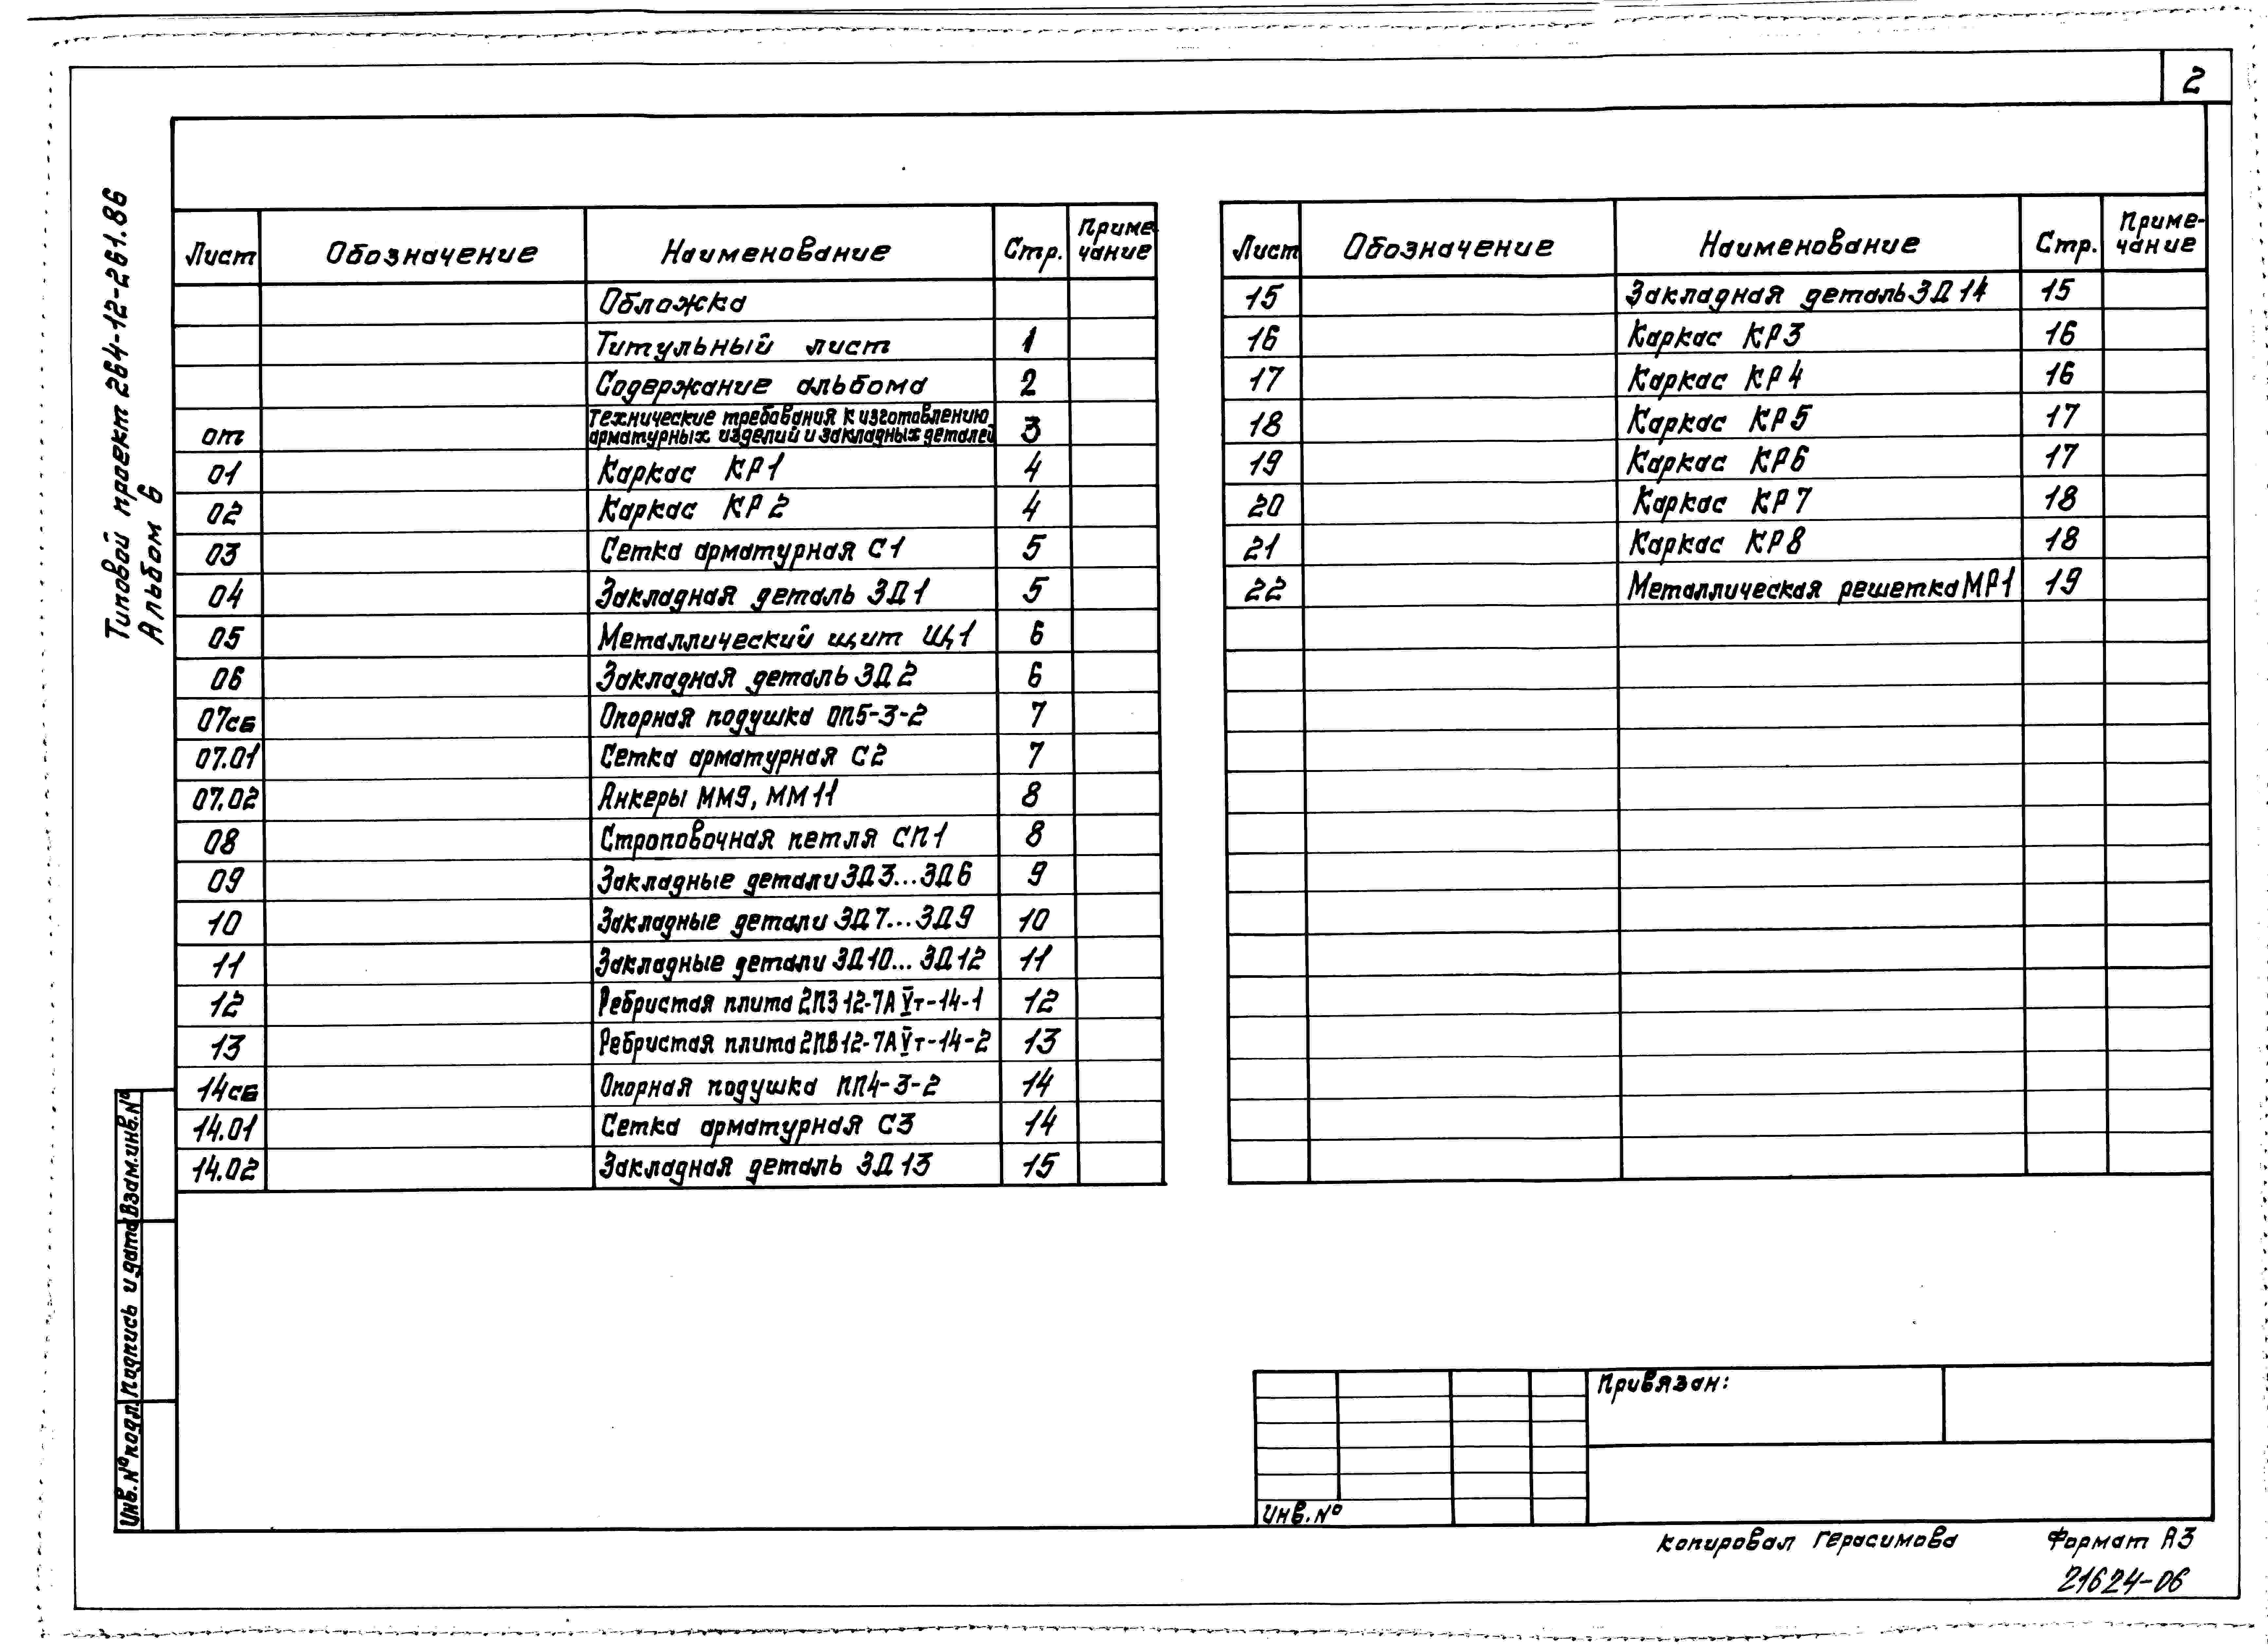 2
Типовой проект 264-12-261.86
Альбом 6
Лист Обозначение Наименование Стр. Приме-
чание
Обложка
Титульный лист 1
Содержание альбома 2
от Технические требования к изготовлению
арматурных изделий и закладных деталей 3
01 Каркас КР1 4
02 Каркас КР2 4
03 Сетка арматурная С1 5
04 Закладная деталь ЗД1 5
05 Металлический щит Щ1 6
06 Закладная деталь ЗД2 6
07сб Опорная подушка ОП5-3-2 7
07.01 Сетка арматурная С2 7
07.02 Анкеры ММ9, ММ11 8
08 Строповочная петля СП1 8
09 Закладные детали ЗД3...ЗД6 9
10 Закладные детали ЗД7...ЗД9 10
11 Закладные детали ЗД10...ЗД12 11
12 Ребристая плита 2ПЗ12-7АVт-14-1 12
13 Ребристая плита 2ПВ12-7АVт-14-2 13
14сб Опорная подушка ПП4-3-2 14
14.01 Сетка арматурная С3 14
14.02 Закладная деталь ЗД13 15
Лист Обозначение Наименование Стр. Приме-
чание
15 Закладная деталь ЗД14 15
16 Каркас КР3 16
17 Каркас КР4 16
18 Каркас КР5 17
19 Каркас КР6 17
20 Каркас КР7 18
21 Каркас КР8 18
22 Металлическая решетка МР1 19
Инв.№подл. Подпись и дата Взам.инв.№
Привязан:
Инв.№
Копировал Герасимова Формат А3
21624-06